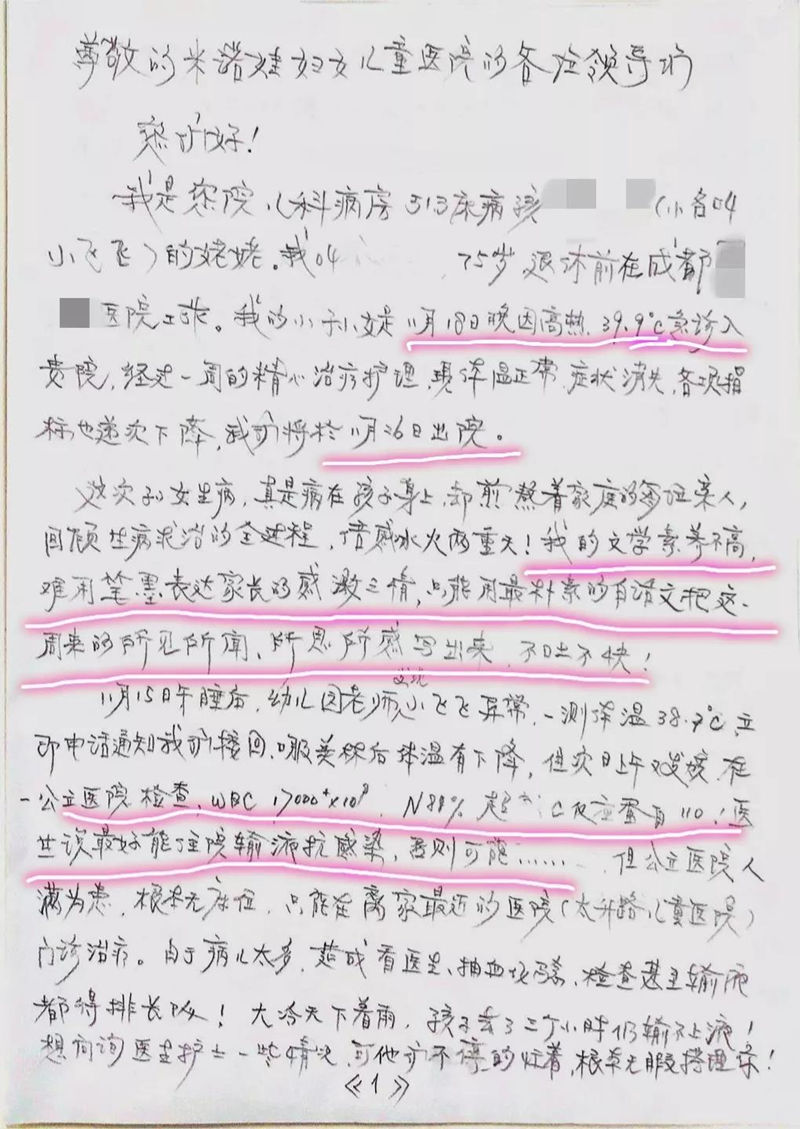 尊敬的米诺娃妇女儿童医院的各位领导们
您们好！
我是您院儿科病房513床病孩 （小名叫
小飞飞）的姥姥。我叫 75岁退休前在成都
医院工作。我的小孙女是11月18日晚因高热39.9℃急诊入
贵院，经过一周的精心治疗护理，现体温正常，症状消失，各项指
标也逐次下降，我们将於11月26日出院。
这次孙女生病，真是病在孩子身上，却煎熬着家庭的每位亲人，
回顾生病求治的全过程，倍感冰火两重天！我的文学素养不高，
难用笔墨表达家长的感激之情，只能用最朴素的白话文把这一
周来的所见所闻、所思所感写出来，不吐不快！
11月15日午睡后，幼儿园老师发现小飞飞异常，一测体温38.7℃，立
即电话通知我们接回，服美林后体温有下降，但次日上午又发烧，在
一公立医院检查，WBC 17000⁺×10⁹，N88% 超 C反应蛋白110！医
生说最好能住院输液抗感染，否则可能…… 但公立医院人
满为患，根本无床位，只能在离家最近的医院（太升路儿童医院）
门诊治疗。由于病儿太多，造成看医生、抽血化验、检查甚至输液
都得排长队！大冷天下着雨，孩子去了三个小时仍输不上液！
想询问医生护士一些情况，可他们不停的忙着，根本无暇搭理你！
《1》